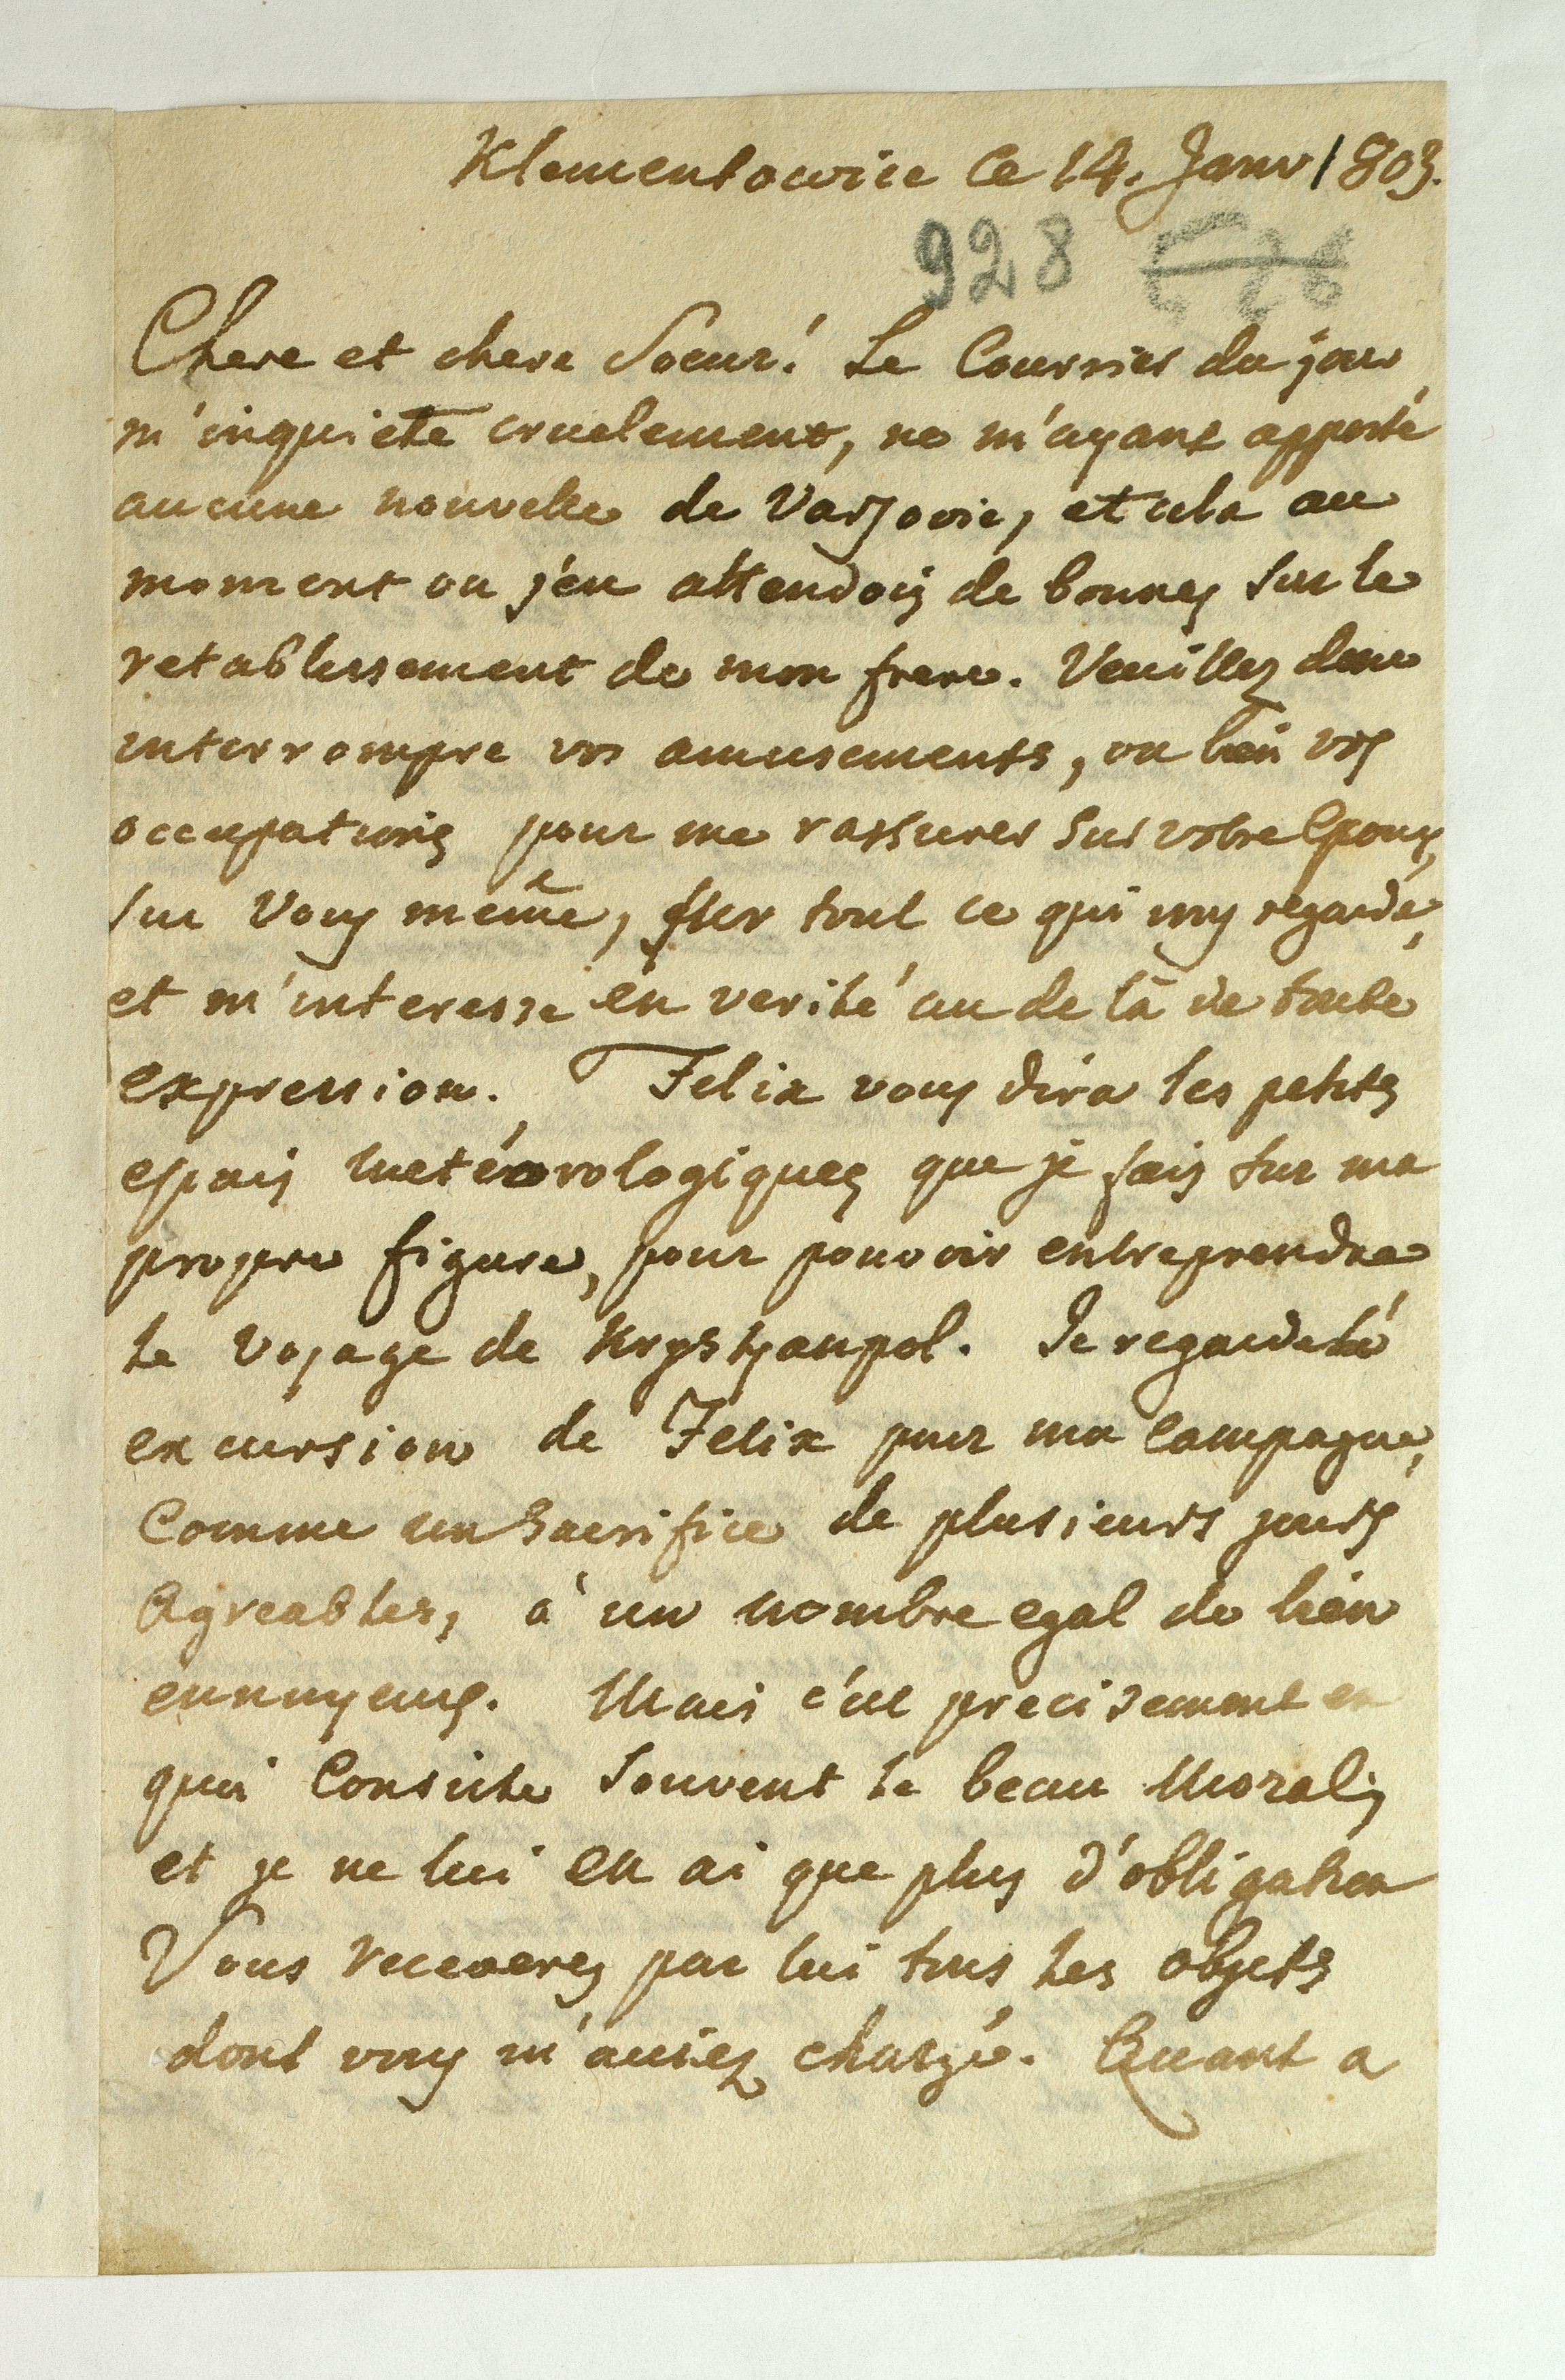 Klementowice ce 14. Janv 1803.
928
Chere et chere Soeur! Le Courrier du jour
m'inquiete cruelement, ne m'ayant apporté
aucune nouvelle de Varsovie, et cela au
moment ou j'en attendois de bonnes sur le
retablissement de mon frere. Veuillez donc
interrompre vos amusements, ou bien vos
occupations pour me rassurer sur votre Epoux,
sur Vous même, sur tout ce qui my regarde,
et m'interesse en verité au de là de toute
expression. Felix vous dira les petits
essais metéorologiques que je fais sur ma
propre figure, pour pouvoir entreprendre
le voyage de Krystjanpol. Je regarde
excursion de Felix pour ma campagne,
Comme un sacrifice de plusieurs jours
Agreables, à un nombre egal de bien
ennuyeux. Mais c'est precisement en
quoi Consiste souvent le beau Moral;
et je ne lui en ai que plus d'obligation
Vous receverez par lui tous les objets
dont vous m'aviez chargé. Quant a